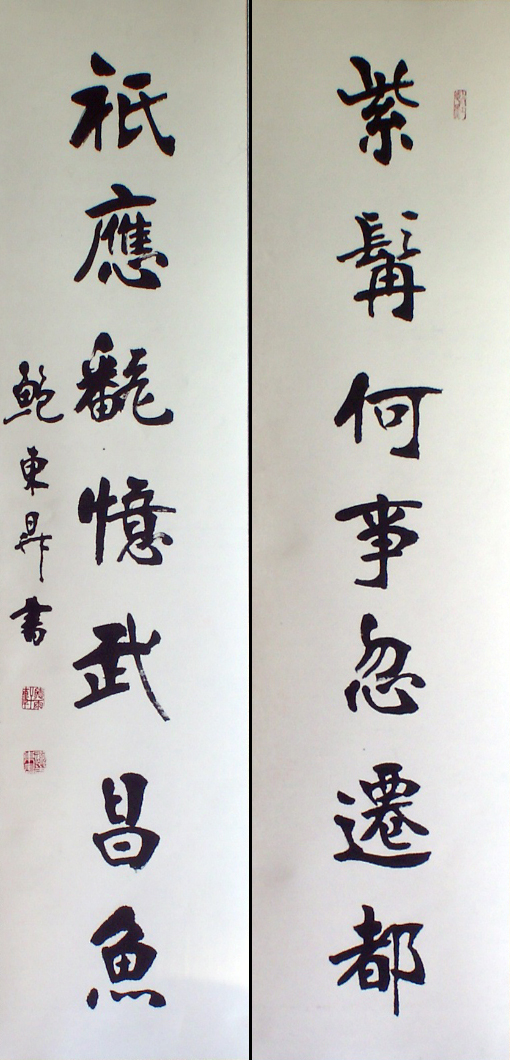 紫髯何事忽遷都
祇應飜憶武昌魚
鮑東昇書